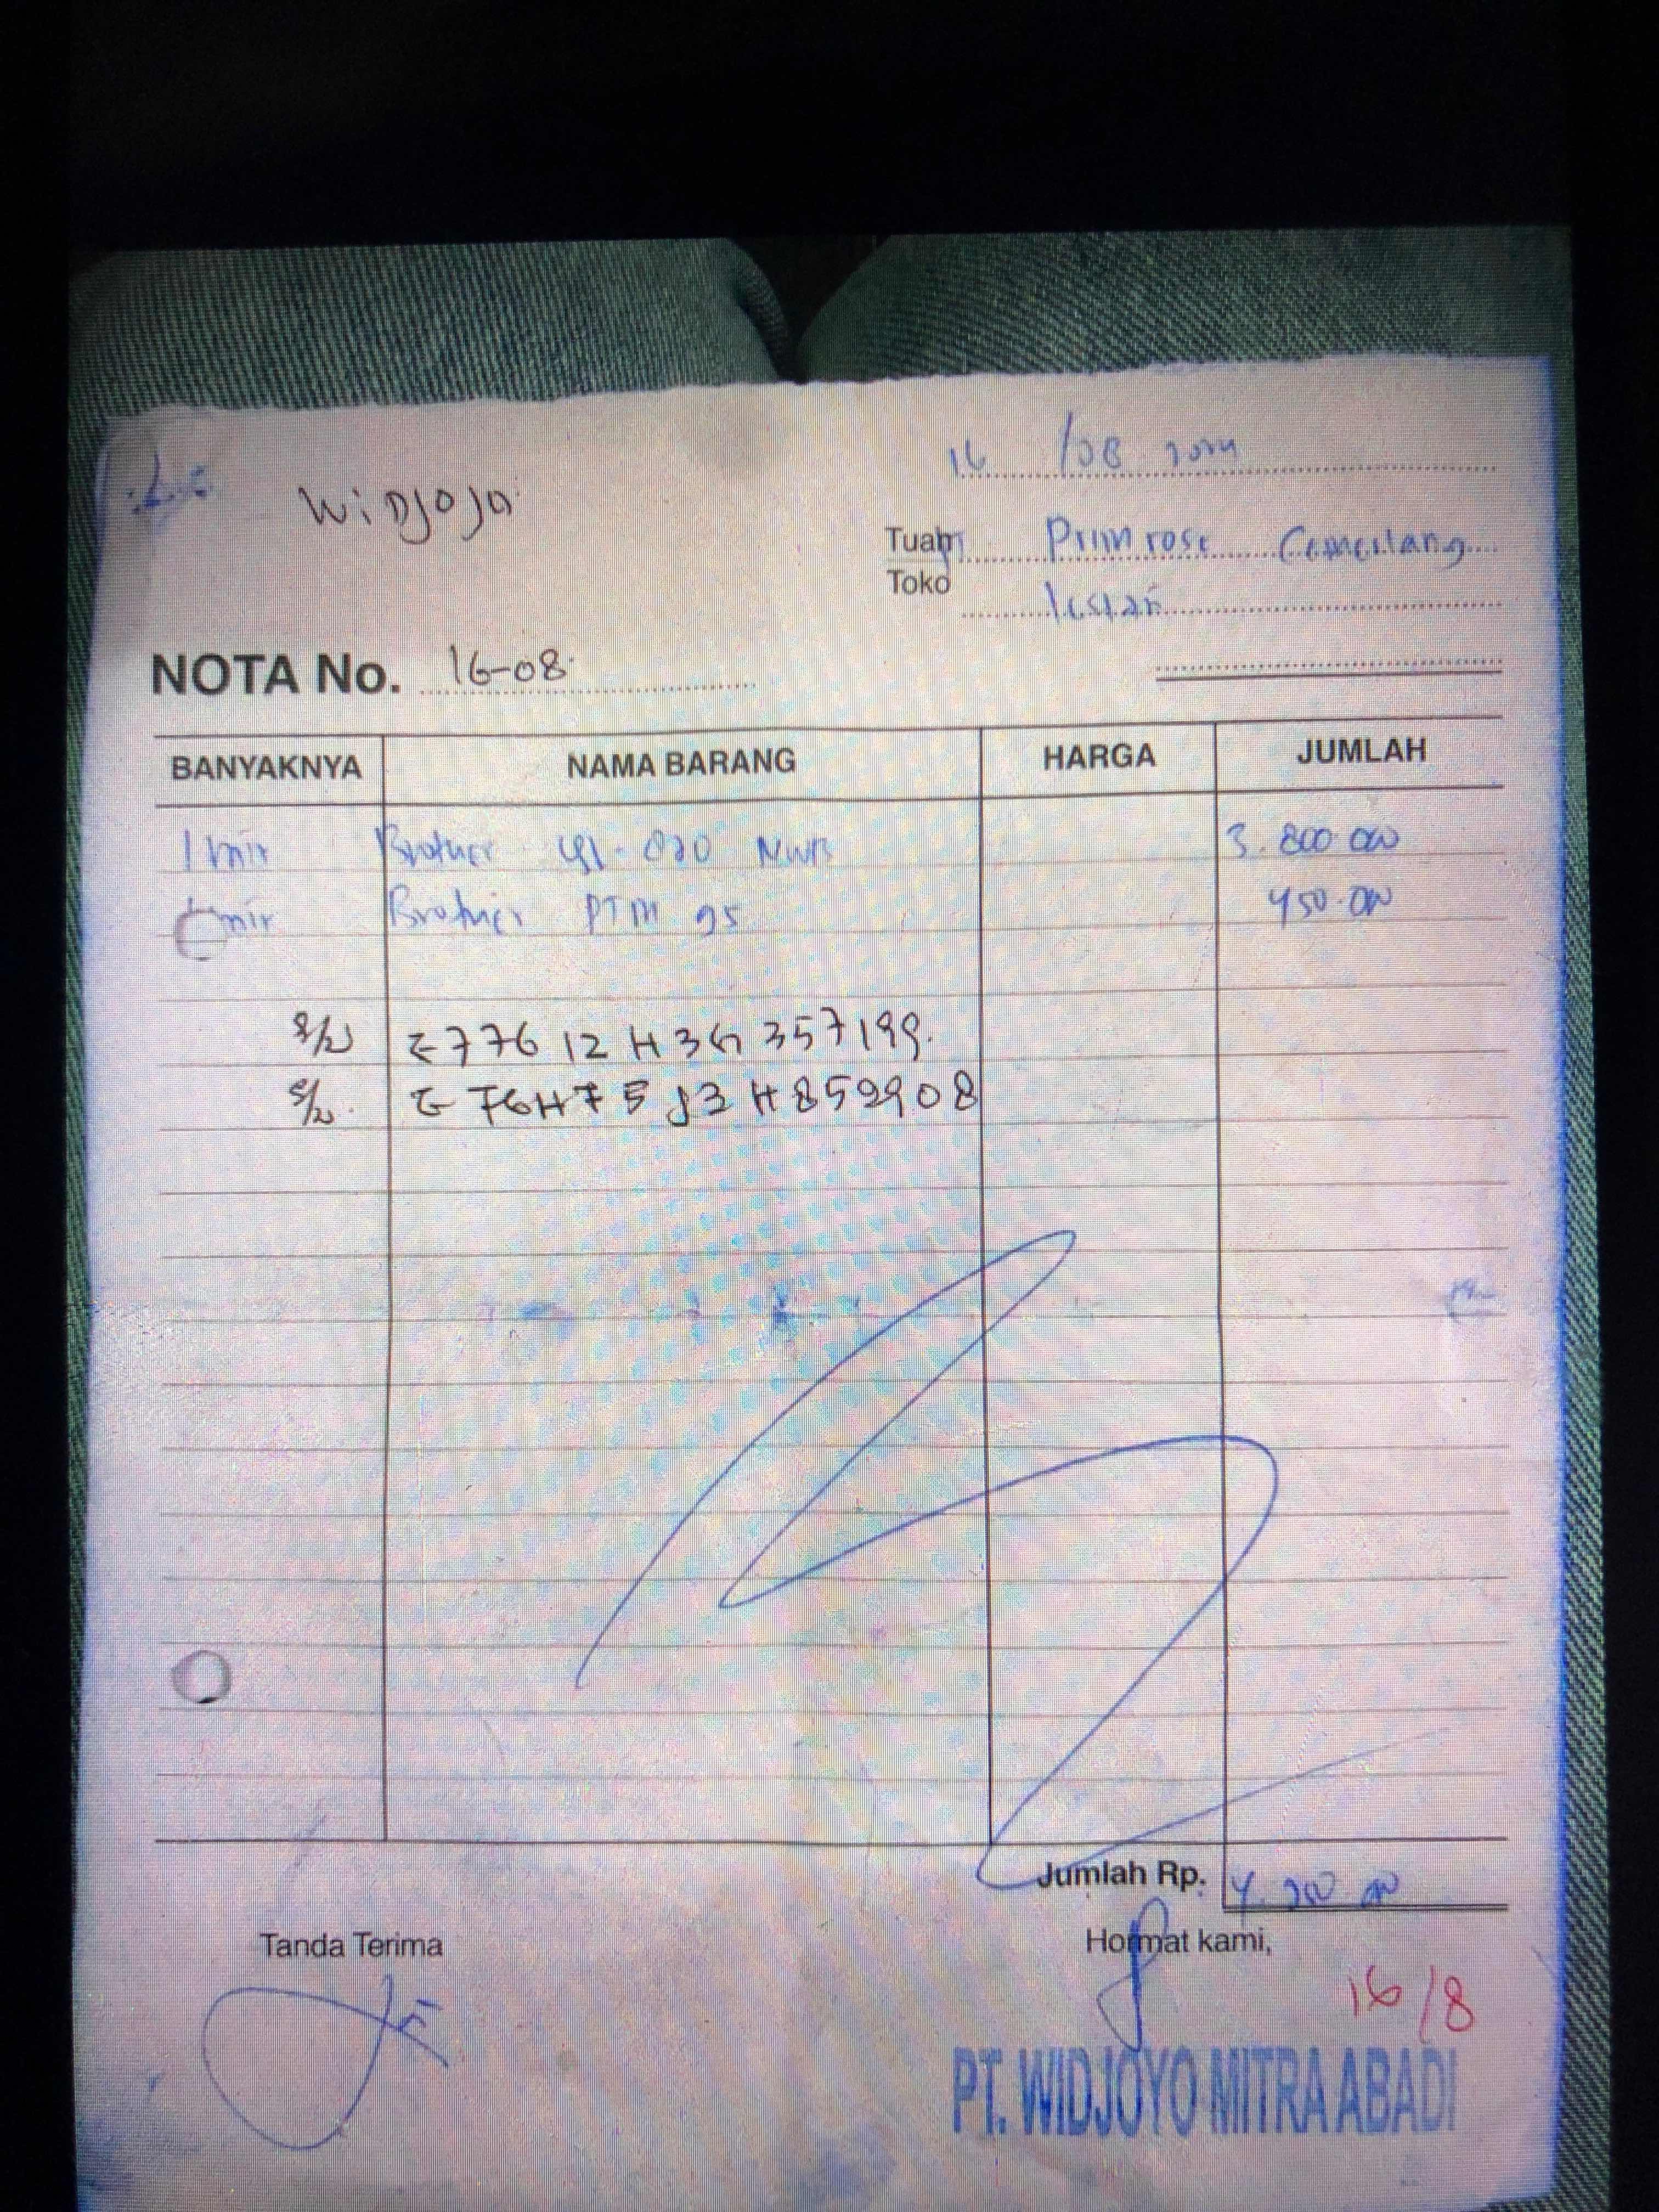 Widjoja
16 /08
Tuan Primrose Cemerlang
Toko lestari
NOTA No. 16-08
BANYAKNYA NAMA BARANG HARGA JUMLAH
1 Brother QL-820 NWB 3.800.000
Brother PTM 95 450.000
S/N E77612H3G357199.
S/N. E76H75J3H859908
Jumlah Rp. 4.
Tanda Terima Hormat kami,
16/8
PT. WIDJOYO MITRA ABADI